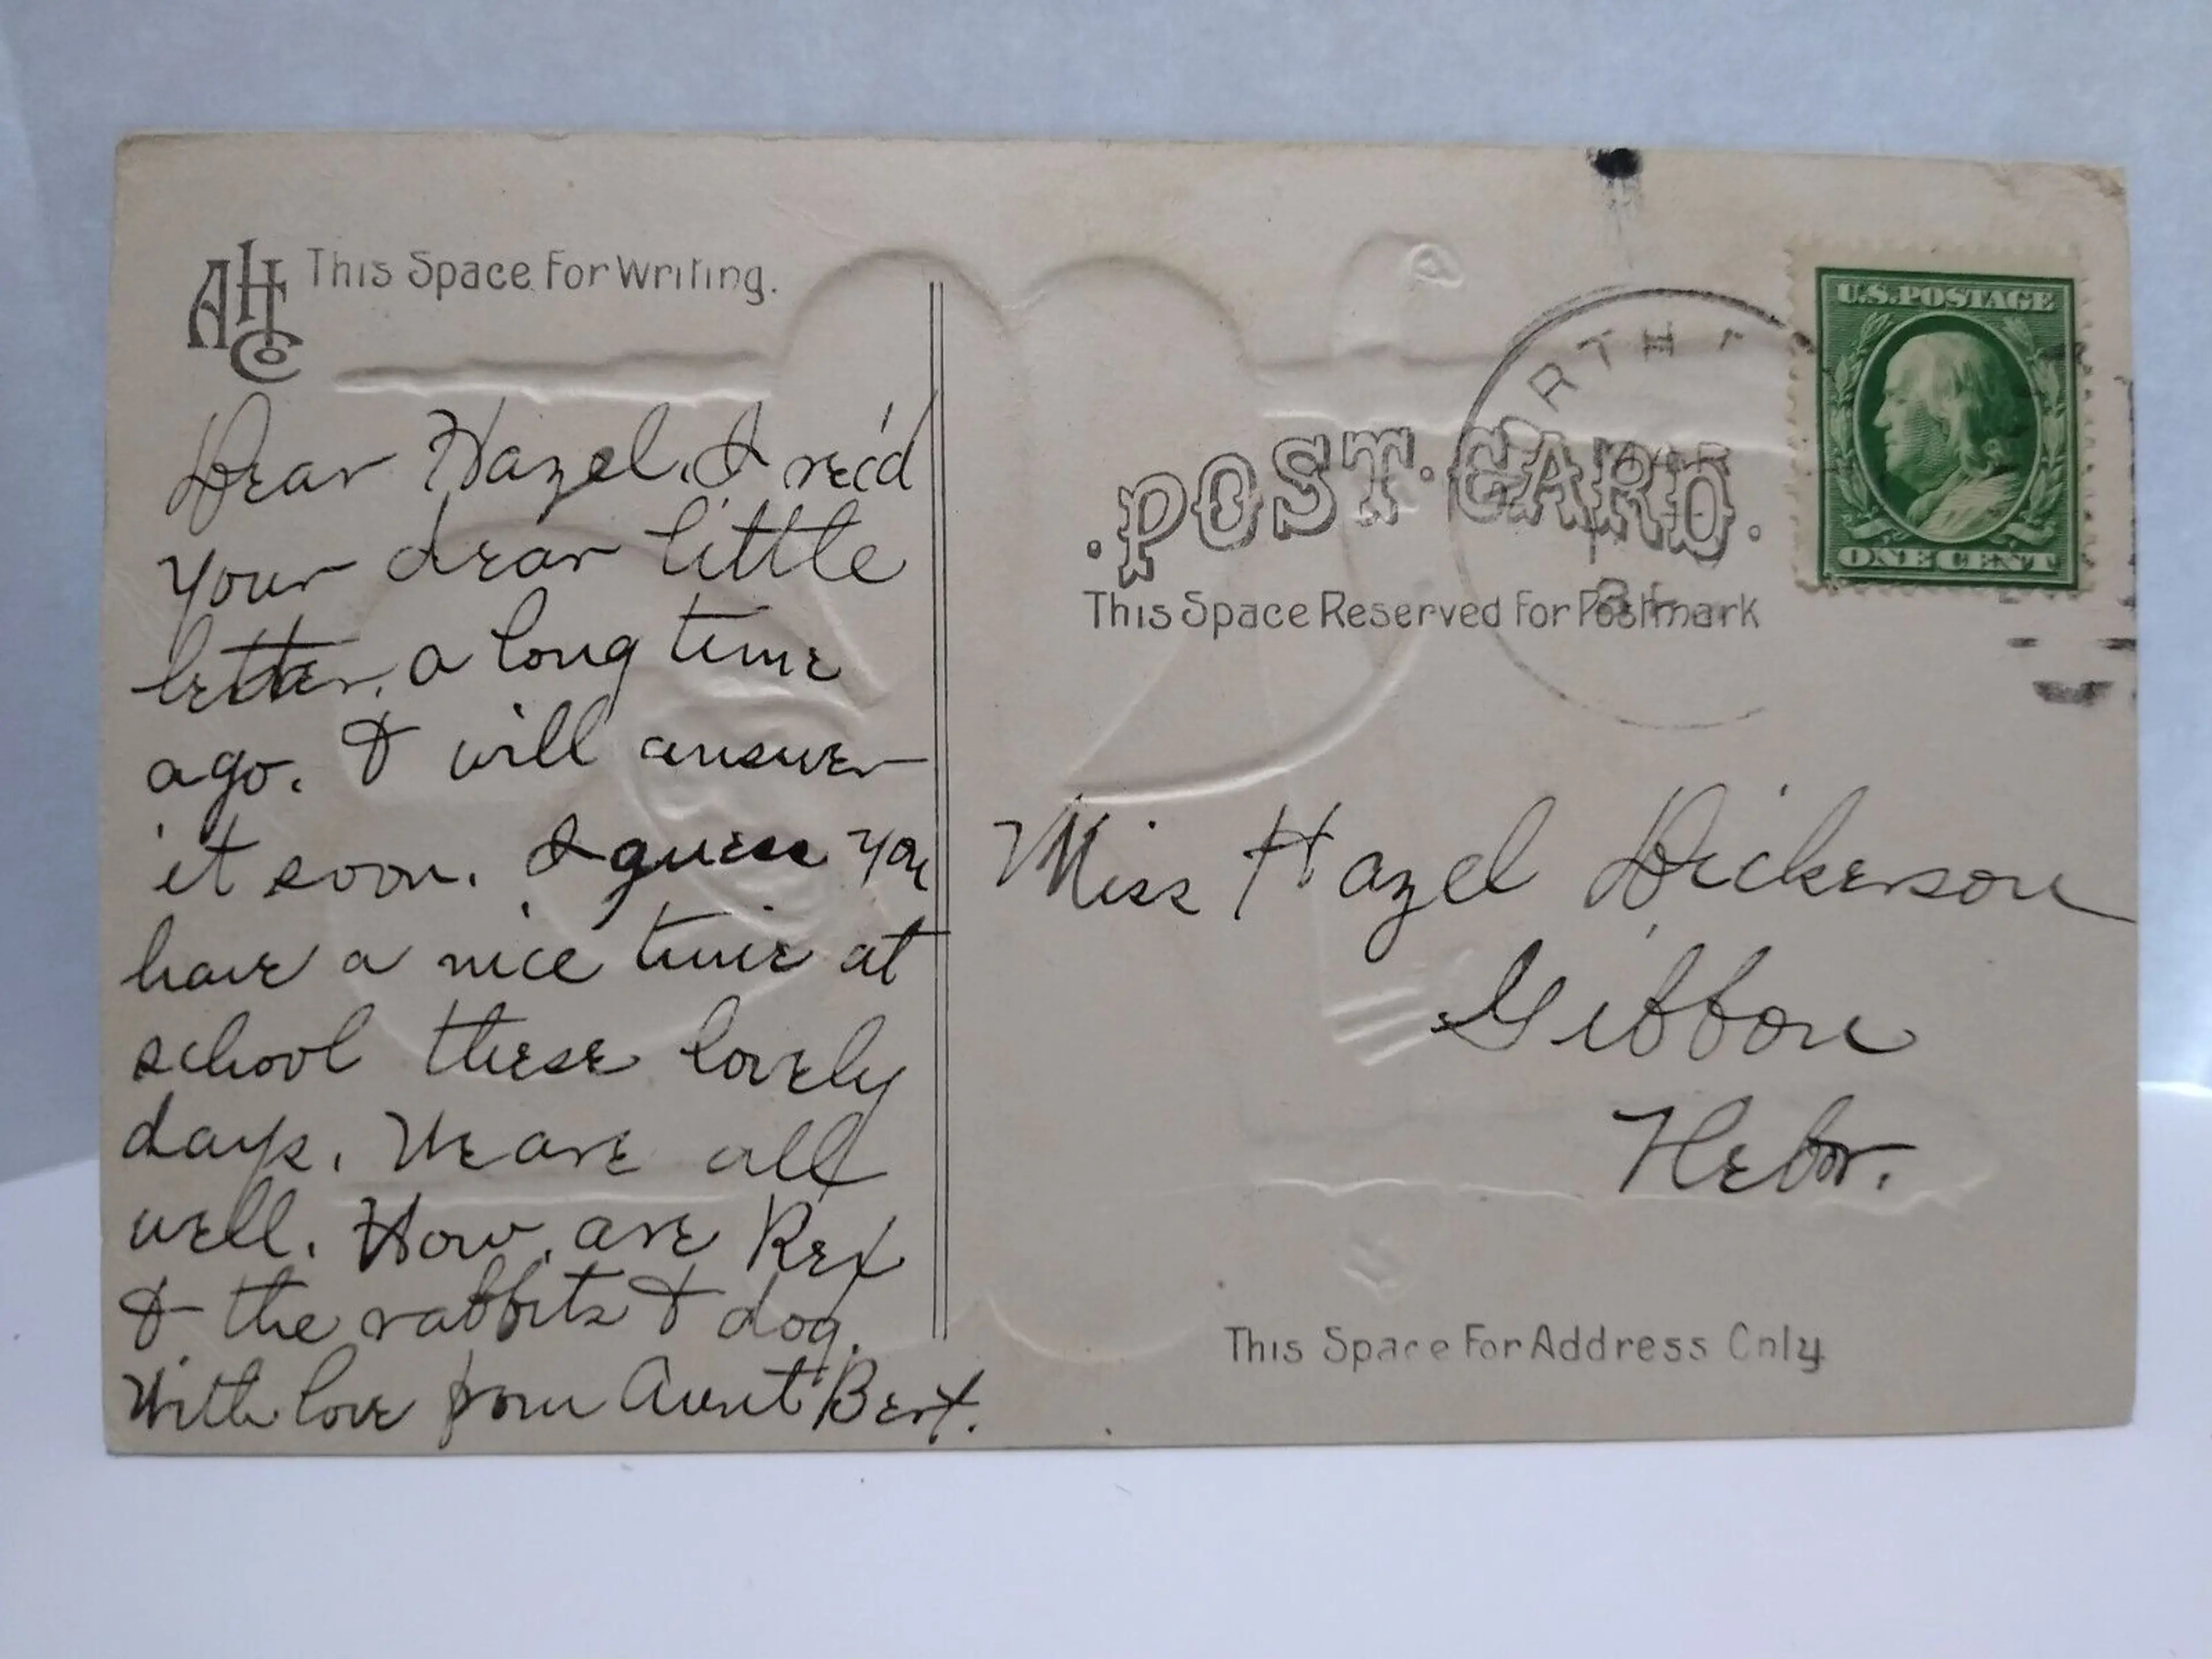 AHCo This Space For Writing.
Dear Hazel. I rec'd
your dear little
letter, a long time
ago. & will answer
it soon. I guess you
have a nice time at
school these lovely
days. We are all
well. How are Rex
& the rabbits & dog.
With love from Aunt Bert.
U.S. POSTAGE
ONE CENT
RTH
.POST·CARD.
This Space Reserved For Postmark
Miss Hazel Dickerson
Gibbon
Nebr.
This Space For Address Only